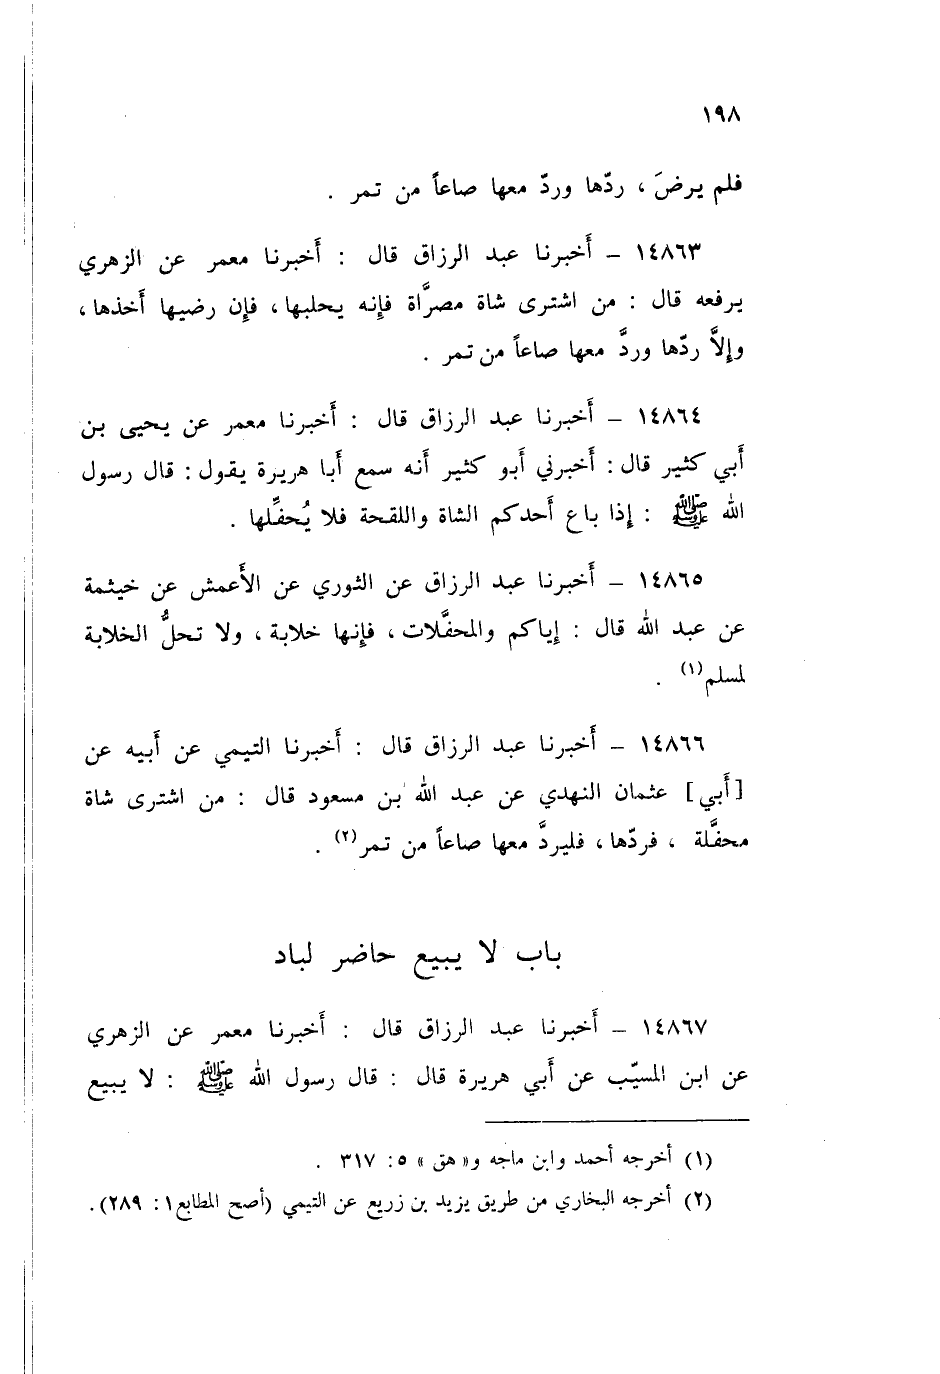 ١٩٨
فلم يرضَ ، ردّها وردّ معها صاعاً من تمر .
١٤٨٦٣ – أَخبرنا عبد الرزاق قال : أَخبرنا معمر عن الزهري
يرفعه قال : من اشترى شاة مصرَّاة فإنه يحلبها ، فإن رضيها أَخذها ،
وإِلاَّ ردّها وردَّ معها صاعاً من تمر .
١٤٨٦٤ – أَخبرنا عبد الرزاق قال : أَخبرنا معمر عن يحيى بن
أَبي كثير قال : أَخبرني أَبو كثير أَنه سمع أَبا هريرة يقول : قال رسول
الله ﷺ : إِذا باع أَحدكم الشاة واللقحة فلا يُحفِّلها .
١٤٨٦٥ – أَخبرنا عبد الرزاق عن الثوري عن الأَعمش عن خيثمة
عن عبد الله قال : إِياكم والمحفَّلات ، فإِنها خلابة ، ولا تحلُّ الخلابة
لمسلم(١) .
١٤٨٦٦ – أَخبرنا عبد الرزاق قال : أَخبرنا التيمي عن أَبيه عن
[أَبي] عثمان النهدي عن عبد الله بن مسعود قال : من اشترى شاة
محفَّلة ، فردّها ، فليردَّ معها صاعاً من تمر(٢) .
باب لا يبيع حاضر لباد
١٤٨٦٧ – أَخبرنا عبد الرزاق قال : أَخبرنا معمر عن الزهري
عن ابن المسيّب عن أَبي هريرة قال : قال رسول الله ﷺ : لا يبيع
(١) أخرجه أحمد وابن ماجه و« هق » ٥: ٣١٧ .
(٢) أخرجه البخاري من طريق يزيد بن زريع عن التيمي (أصح المطابع ١ : ٢٨٩).